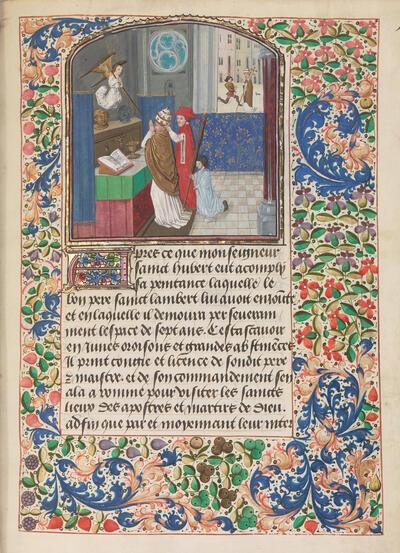 Apres ce que mon seigneur
sainct hubert eut acomply
sa penitance laquelle le
bon pere sainct lambert luy auoit enioitte
et en laquelle il demoura perseueram
ment lespace de sept ans. Cest assauoir
en Iunes oroisons et grandes abstinẽces
Il print congie et licence de sondit pere
z maistre. et de son commandement sen
ala a romme pour visiter les saincts
lieux des apostres et martirs de dieu.
adfin que par et moyennant leur inter